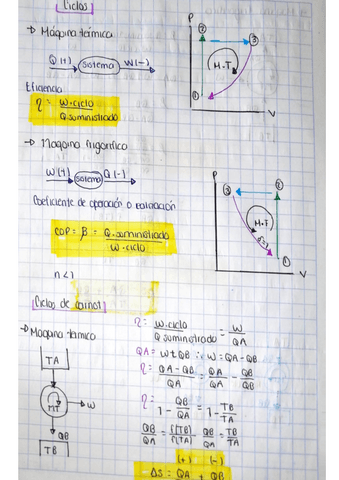 Ciclos
→ Máquina térmica
Q(+) → sistema → W(-)
Eficiencia
η = W.ciclo / Q suministrado
P
②
③
M.T
①
V
→ Maquina frigorifica
W(+) → sistema Q(-) →
Coeficiente de operación o
COP = β = Q.suministrado / W.ciclo
n<1
P
③
②
M.F
①
V
Ciclos de carnot
→ Maquina termico
TA
MT
→ W
QB
TB
η: W.ciclo / Q suministrado = W / QA
QA = W + QB ∴ W = QA - QB
η: QA - QB / QA = QA / QA - QB / QB
η: 1 - QB / QA = 1 - TB / TA
QB / QA = f(TB) / f(TA) QB / QA = TB / TA
(+) (-)
ΔS = QA + QB